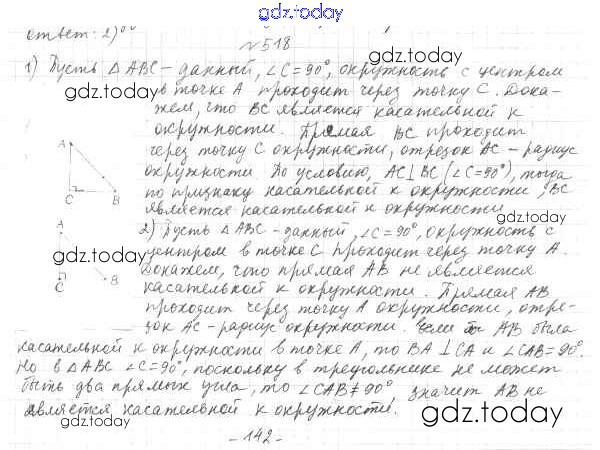 gdz.today
ответ: 2)
№518
1) Пусть △ABC – данный, ∠C=90°, окружность с центром
в точке A проходит через точку C. Дока-
жем, что BC является касательной к
окружности. Прямая BC проходит
через точку C окружности, отрезок AC – радиус
окружности. По условию, AC⊥BC (∠C=90°), тогда
по признаку касательной к окружности, BC
является касательной к окружности.
A
C
B
2) Пусть △ABC – данный, ∠C=90°, окружность с
центром в точке C проходит через точку A.
Докажем, что прямая AB не является
касательной к окружности. Прямая AB
проходит через точку A окружности, отре-
зок AC – радиус окружности. Если бы AB была
касательной к окружности в точке A, то BA⊥CA и ∠CAB=90°.
Но в △ABC ∠C=90°, поскольку в треугольнике не может
быть два прямых угла, то ∠CAB≠90° значит AB не
является касательной к окружности.
A
C
B
- 142 -
gdz.today
gdz.today
gdz.today
gdz.today
gdz.today
gdz.today
gdz.today